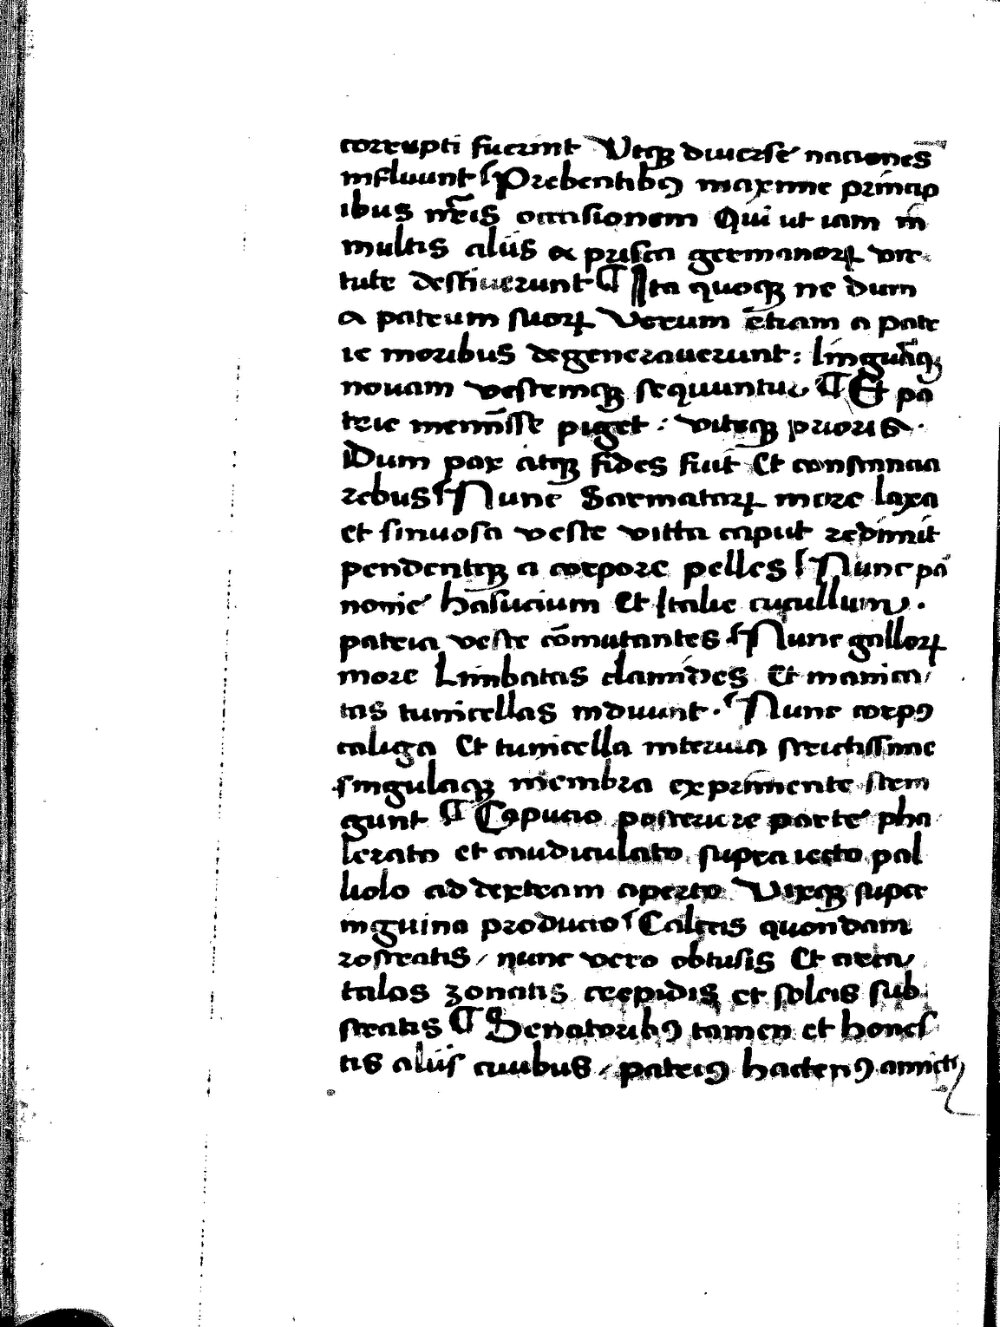 corrupti fuerint Utqꝫ diuerse naciones
influunt Prebentibꝰ maxime princip
ibus nr̄is occasionem Qui ut iam in
multis aliis ex prisca germanoꝝ vir
tute destiuerunt ¶ Ita quoqꝫ ne dum
a patrum suoꝝ Verum etiam a patr
ie moribus degenerauerunt: linguāqꝫ
nouam vestemqꝫ sequuntur ¶ Et pa
trie meminīsse piget: viteqꝫ prioris.
Dum pax atqꝫ fides fuit Et constancia
rebus Nunc Sarmatoꝝ more laxa
et sinuosa veste vitta caput redimit
pendentqꝫ a corpore pelles Nunc pā
nonie hāsucium Et Italie cucullum.
patria veste cōmutantes Nunc galloꝝ
more Limbatas clamides Et manica/
tas tunicellas induunt. Nunc corpꝰ
caliga Et tunicella interula strictissime
singulaqꝫ membra exprimente strin
gunt ¶ Capucio posteriore parte pha
lerato et caudiculato supra iecto pal
liolo ad dextram aperto Vixqꝫ super
inguina producto Calceis quondam
rostratis / nunc vero obtusis Et circa
talos zonatis crepidis et soleis sub
stratis ¶ Senatoribꝰ tamen et hones
tis aliis ciuibus / patriꝰ hactenꝰ amicti